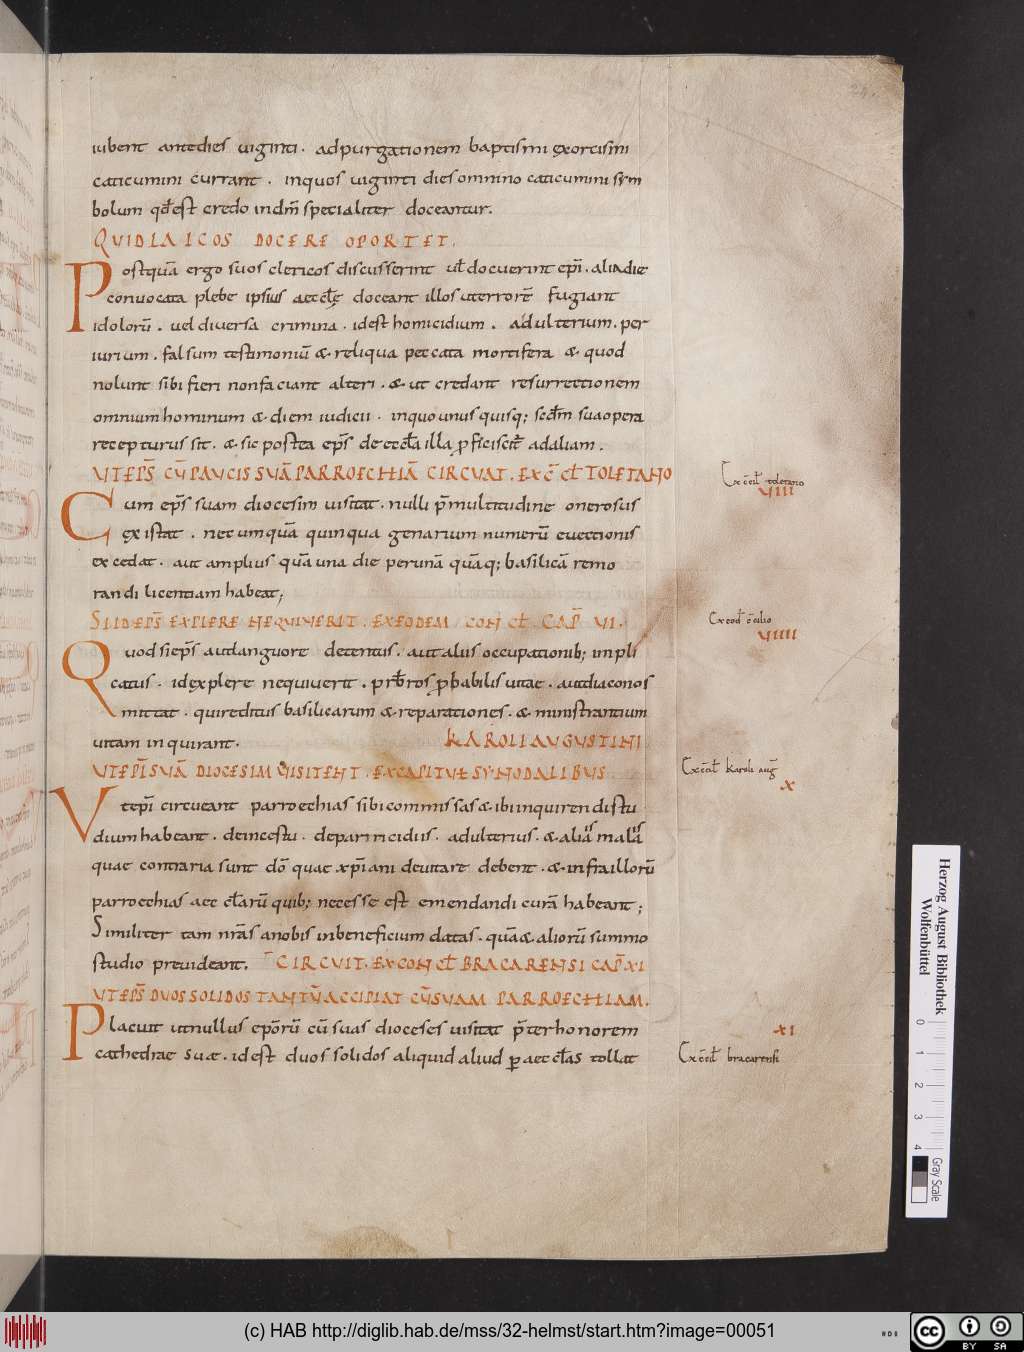 24.
iubent antedies uiginti. adpurgationem baptismi exorcismi
caticumini currant. inquos uiginti dies omnino caticumini sym
bolum qđ est credo indm̄ specialiter doceantur.
QUID LAICOS DOCERE OPORTET.
Postquā ergo suos clericos discusserint ul̄ docuerint ep̄i. alia die
conuocata plebe ipsius aeccl̄ę doceant illos ut errorē fugiant
idolorū. uel diuersa crimina. id est homicidium. adulterium. per
iurium. falsum testimoniū & reliqua peccata mortifera & quod
nolunt sibi fieri non faciant alteri. & ut credant resurrectionem
omnium hominum & diem iudicii. in quo unusquisq; scdm̄ sua opera
recepturus sit. & sic postea ep̄s de eccl̄a illa proficiscit̄ ad aliam.
UT EP̄S CŪ PAUCIS SUĀ PARROECHIĀ CIRCUAT. EX C̄ CL̄ TOLETANO
Cum ep̄s suam diocesim uisitat. nulli p̄ multitudine onerosus
existat. nec umquā quinquagenarium numerū euectionis
excedat. aut amplius quā una die per unā quāq; basilicā remo
randi licentiam habeat;
SI ID EP̄S EXPLERE NEQUIUERIT. EX EODEM CON CL̄. CAP̄ VI.
Quod si ep̄s aut languore detentus. aut aliis occupationib; inpli
catus. id explere nequiuerit. prb̄ros probabilis uitae. aut diaconos
mittat. qui reditus basilicarum & reparationes. & ministrantium
uitam inquirant. KAROLI AUGUSTI HI
UT EP̄I SUĀ DIOCESIM UISITENT. EX CAPITUL SYNODALIBUS
Ut ep̄i circueant parroechias sibi commissas & ibi inquirendi stu
dium habeant. de incestu. de parricidiis. adulteriis. & alia mala
quae contraria sunt dō quae xp̄iani deuitare debent. & infra illorū
parroechias aec cl̄arū quib; necesse est emendandi curā habeant;
Similiter tam nr̄as a nobis in beneficium datas. quā & aliorū summo
studio preuideant. CIRCUIT. EX CON CL̄ BRACARENSI CAP̄ XI
UT EP̄S DUOS SOLIDOS TANTŪ ACCIPIAT CŪ SUAM PARROECHIAM.
Placuit ut nullus ep̄orū cū suas dioceses uisitat p̄ter honorem
cathedrae suae. id est duos solidos aliquid aliud p aeccl̄as tollat
Ex c̄cil̄ toletano
VIII
Ex eod̄ c̄cilio
VIIII
Ex c̄cil̄ Karoli aug̅
X
XI
Ex c̄cil̄ bracarensi
Herzog August Bibliothek
Wolfenbüttel
0 1 2 3 4
Gray Scale
(c) HAB http://diglib.hab.de/mss/32-helmst/start.htm?image=00051
cc BY SA